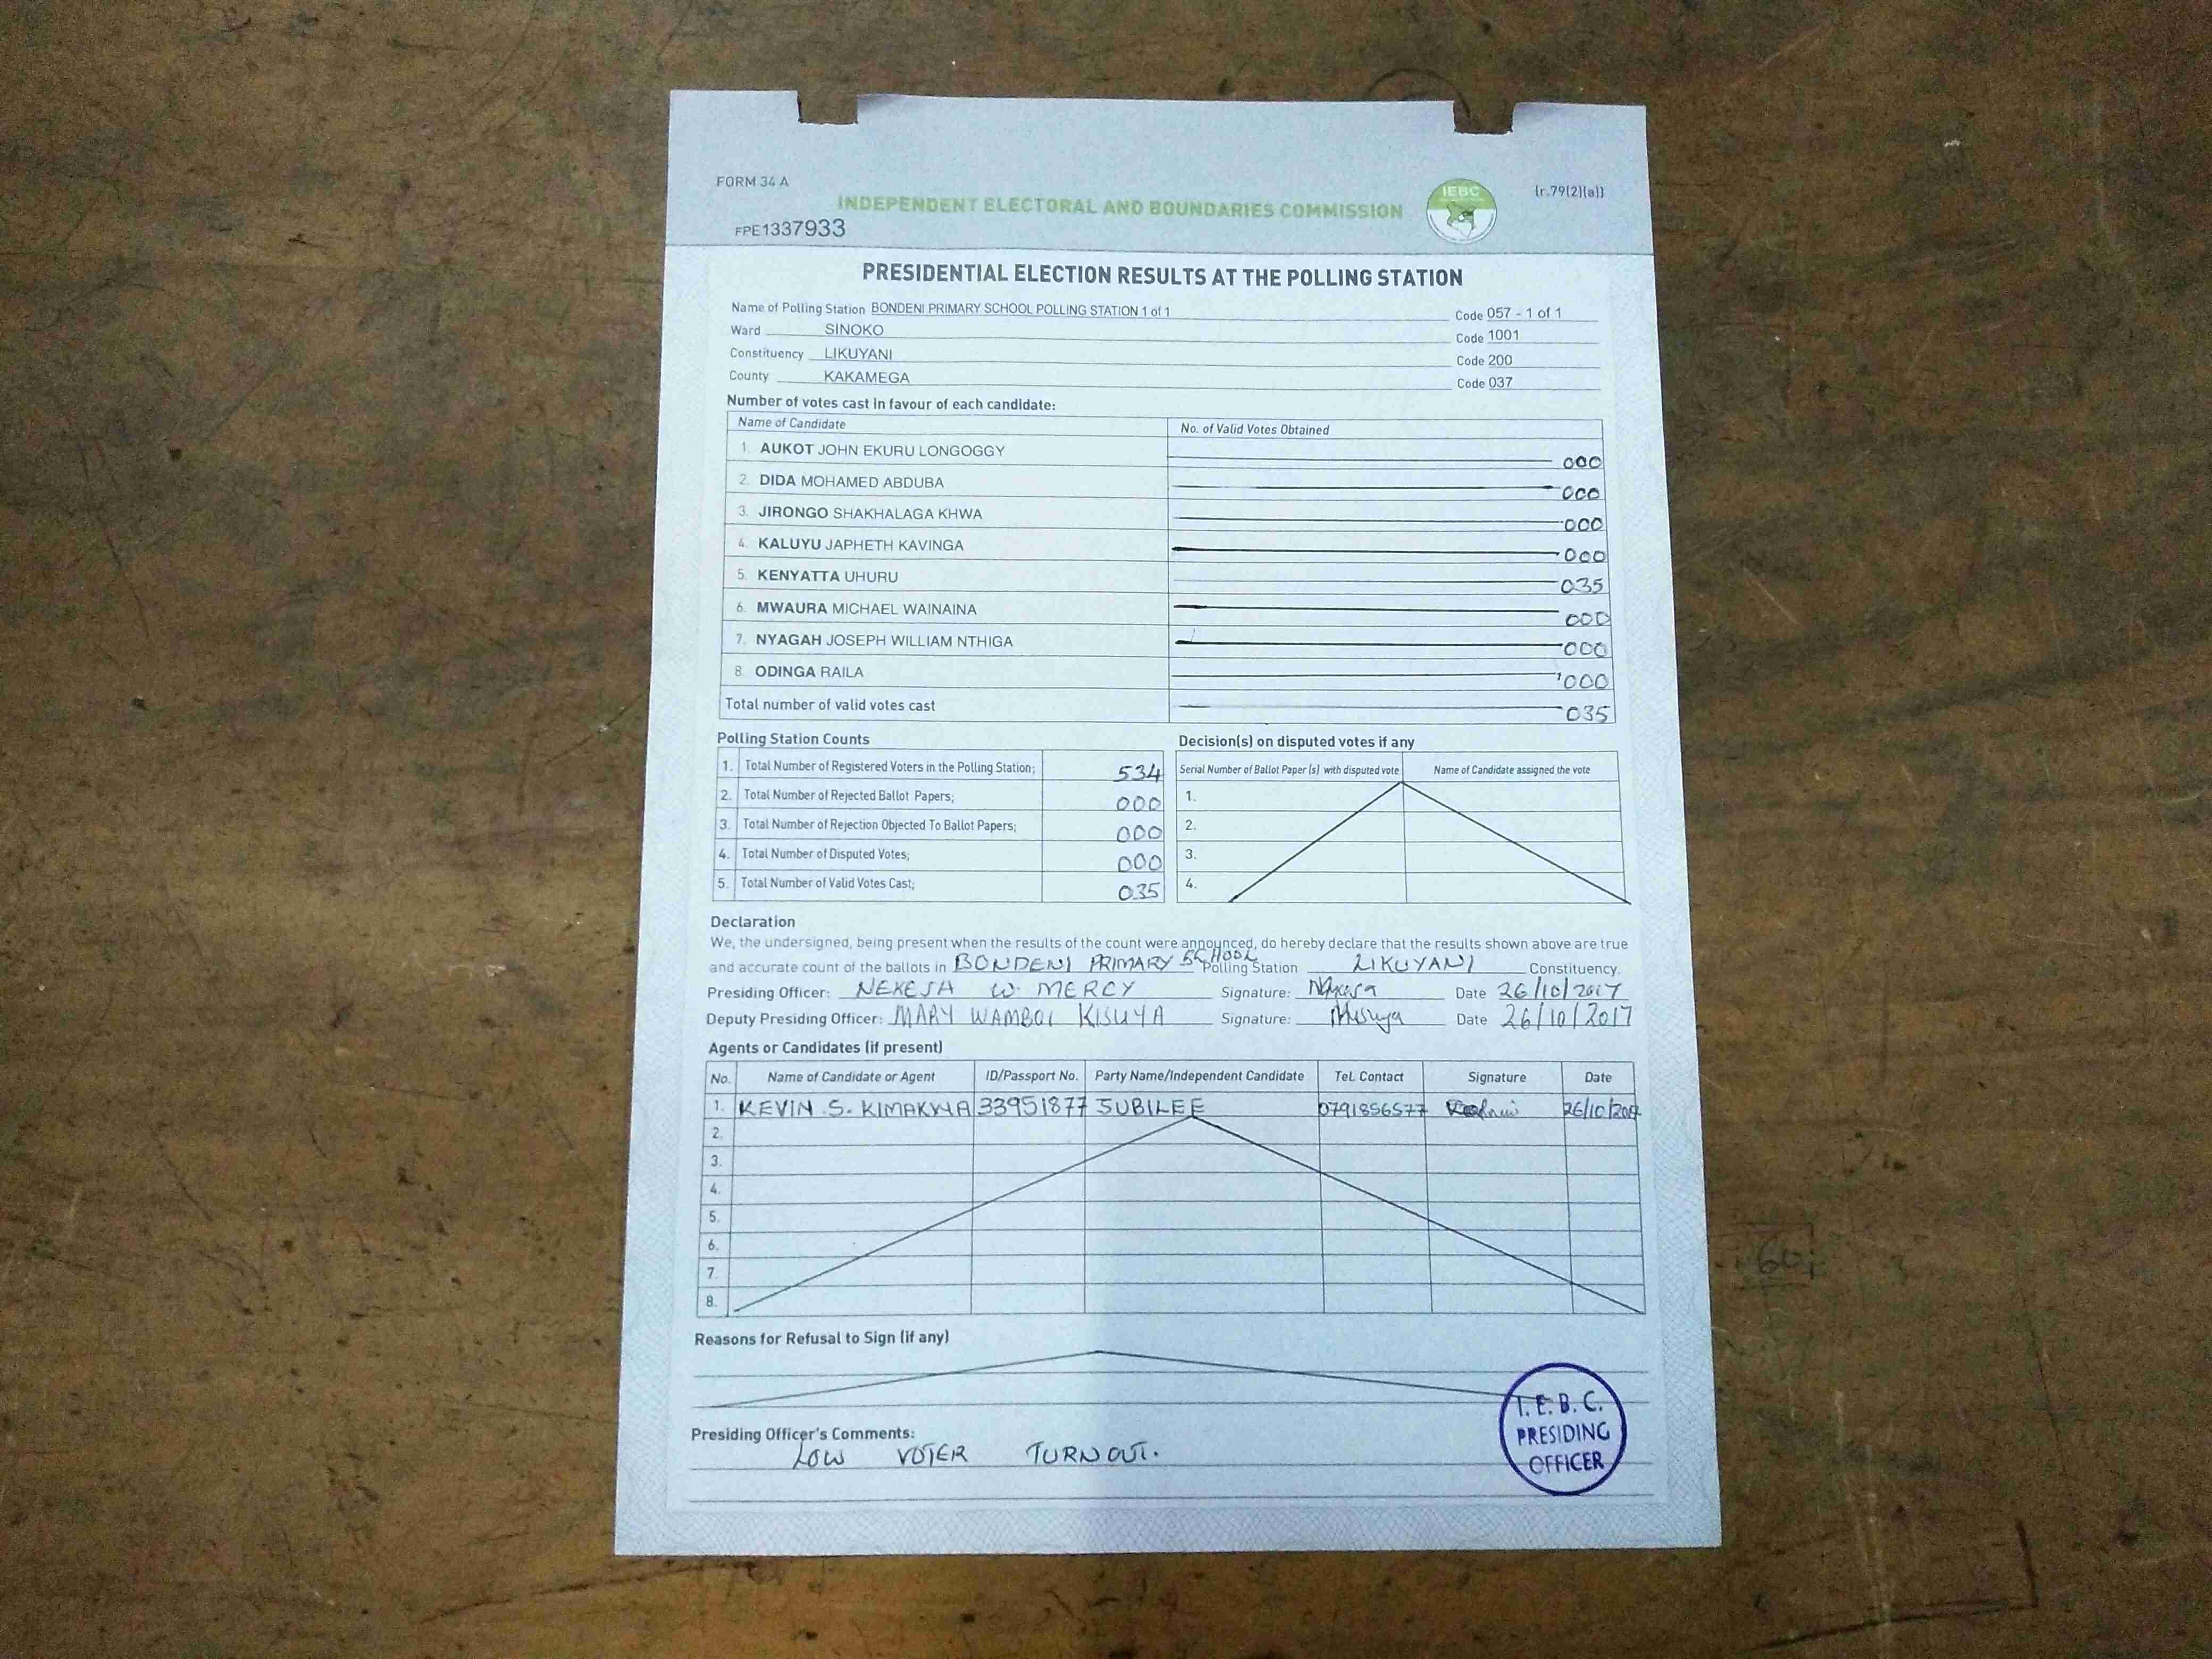 FORM 34 A
(r.79(2)(a))
INDEPENDENT ELECTORAL AND BOUNDARIES COMMISSION
IEBC
FPE1337933
PRESIDENTIAL ELECTION RESULTS AT THE POLLING STATION
Name of Polling Station BONDENI PRIMARY SCHOOL POLLING STATION 1 of 1 Code 057 - 1 of 1
Ward SINOKO Code 1001
Constituency LIKUYANI Code 200
County KAKAMEGA Code 037
Number of votes cast in favour of each candidate:
Name of Candidate No. of Valid Votes Obtained
1. AUKOT JOHN EKURU LONGOGGY 000
2. DIDA MOHAMED ABDUBA 000
3. JIRONGO SHAKHALAGA KHWA 000
4. KALUYU JAPHETH KAVINGA 000
5. KENYATTA UHURU 035
6. MWAURA MICHAEL WAINAINA 000
7. NYAGAH JOSEPH WILLIAM NTHIGA 000
8. ODINGA RAILA 000
Total number of valid votes cast 035
Polling Station Counts
1. Total Number of Registered Voters in the Polling Station; 534
2. Total Number of Rejected Ballot Papers; 000
3. Total Number of Rejection Objected To Ballot Papers; 000
4. Total Number of Disputed Votes; 000
5. Total Number of Valid Votes Cast; 035
Decision(s) on disputed votes if any
Serial Number of Ballot Paper (s) with disputed vote Name of Candidate assigned the vote
1.
2.
3.
4.
Declaration
We, the undersigned, being present when the results of the count were announced, do hereby declare that the results shown above are true
and accurate count of the ballots in BONDENI PRIMARY SCHOOL Polling Station LIKUYANI Constituency.
Presiding Officer: NEKESA W. MERCY Signature: Date 26/10/2017
Deputy Presiding Officer: MARY WAMBOI KISUYA Signature: Date 26/10/2017
Agents or Candidates (if present)
No. Name of Candidate or Agent ID/Passport No. Party Name/Independent Candidate Tel. Contact Signature Date
1. KEVIN S. KIMAKWA 33951877 JUBILEE 0791856577 26/10/2017
2.
3.
4.
5.
6.
7.
8.
Reasons for Refusal to Sign (if any)
Presiding Officer's Comments:
LOW VOTER TURNOUT.
I.E.B.C.
PRESIDING
OFFICER